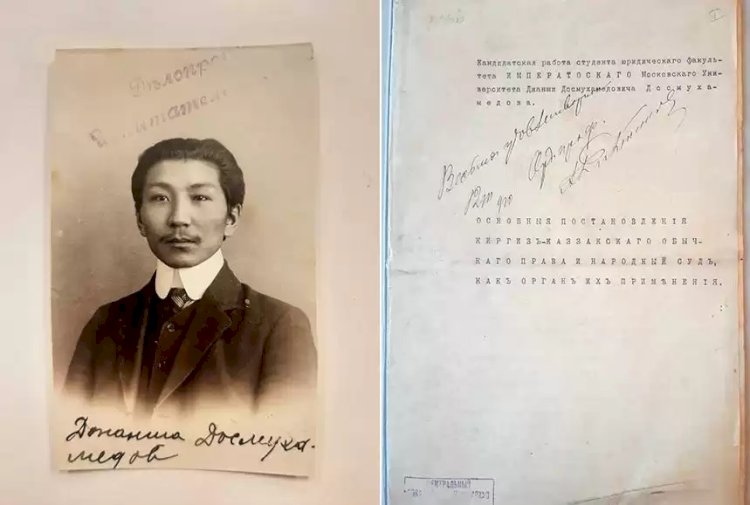 Джанша Досмуха-
медов
I
Кандидатская работа студента юридическаго факуль-
тета ИМПЕРАТОСКАГО Московскаго Уни-
верситета Джанши Досмухамедовича Досмуха-
медова.
Весьма
ОСНОВНЫЯ ПОСТАНОВЛЕНІЯ
КИРГИЗЪ-КАЗЗАКСКАГО ОБЫЧ-
НАГО ПРАВА И НАРОДНЫЙ СУДЪ,
КАКЪ ОРГАНЪ ИХЪ ПРИМѢНЕНІЯ.